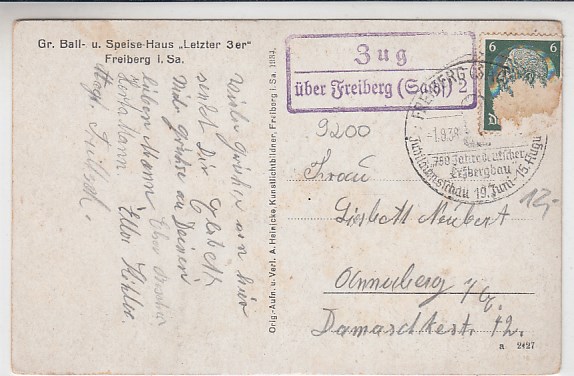 Gr. Ball- u. Speise-Haus „Letzter 3er"
Freiberg i. Sa.
Viele Grüße von hier
sendet Dir
Viele Grüße an Deinen
lieben Mann
Herta Mann
Orig.-Aufn. u. Verl. A. Heinicke, Kunstlichtbildner, Freiberg i. Sa. 1934.
Zug
über Freiberg (Sachs) 2
6 6
FREIBERG (SACHS)
-1.9.38
750 Jahre deutscher
Erzbergbau
Jubiläumsschau 19. Juni - 15. Augu
9200
12,-
Frau
Liesbeth Neubert
Annaberg i/E.
Damaschkestr. 12.
a 2427